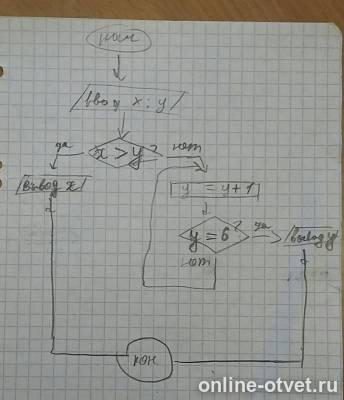 нач
ввод x; y
да x > y ? нет
вывод x
y = y + 1
y = 6 ? да
вывод y
нет
кон
online-otvet.ru